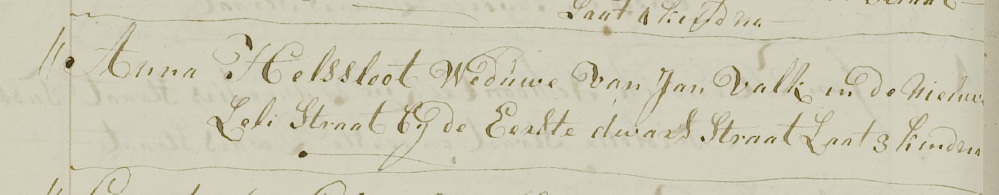 Laat 1 kindra
11 Anna Helssloot Weduwe van Jan Valk in de Nieuwe
Leli Straat by de Eerste dwars Straat Laat 3 kindra